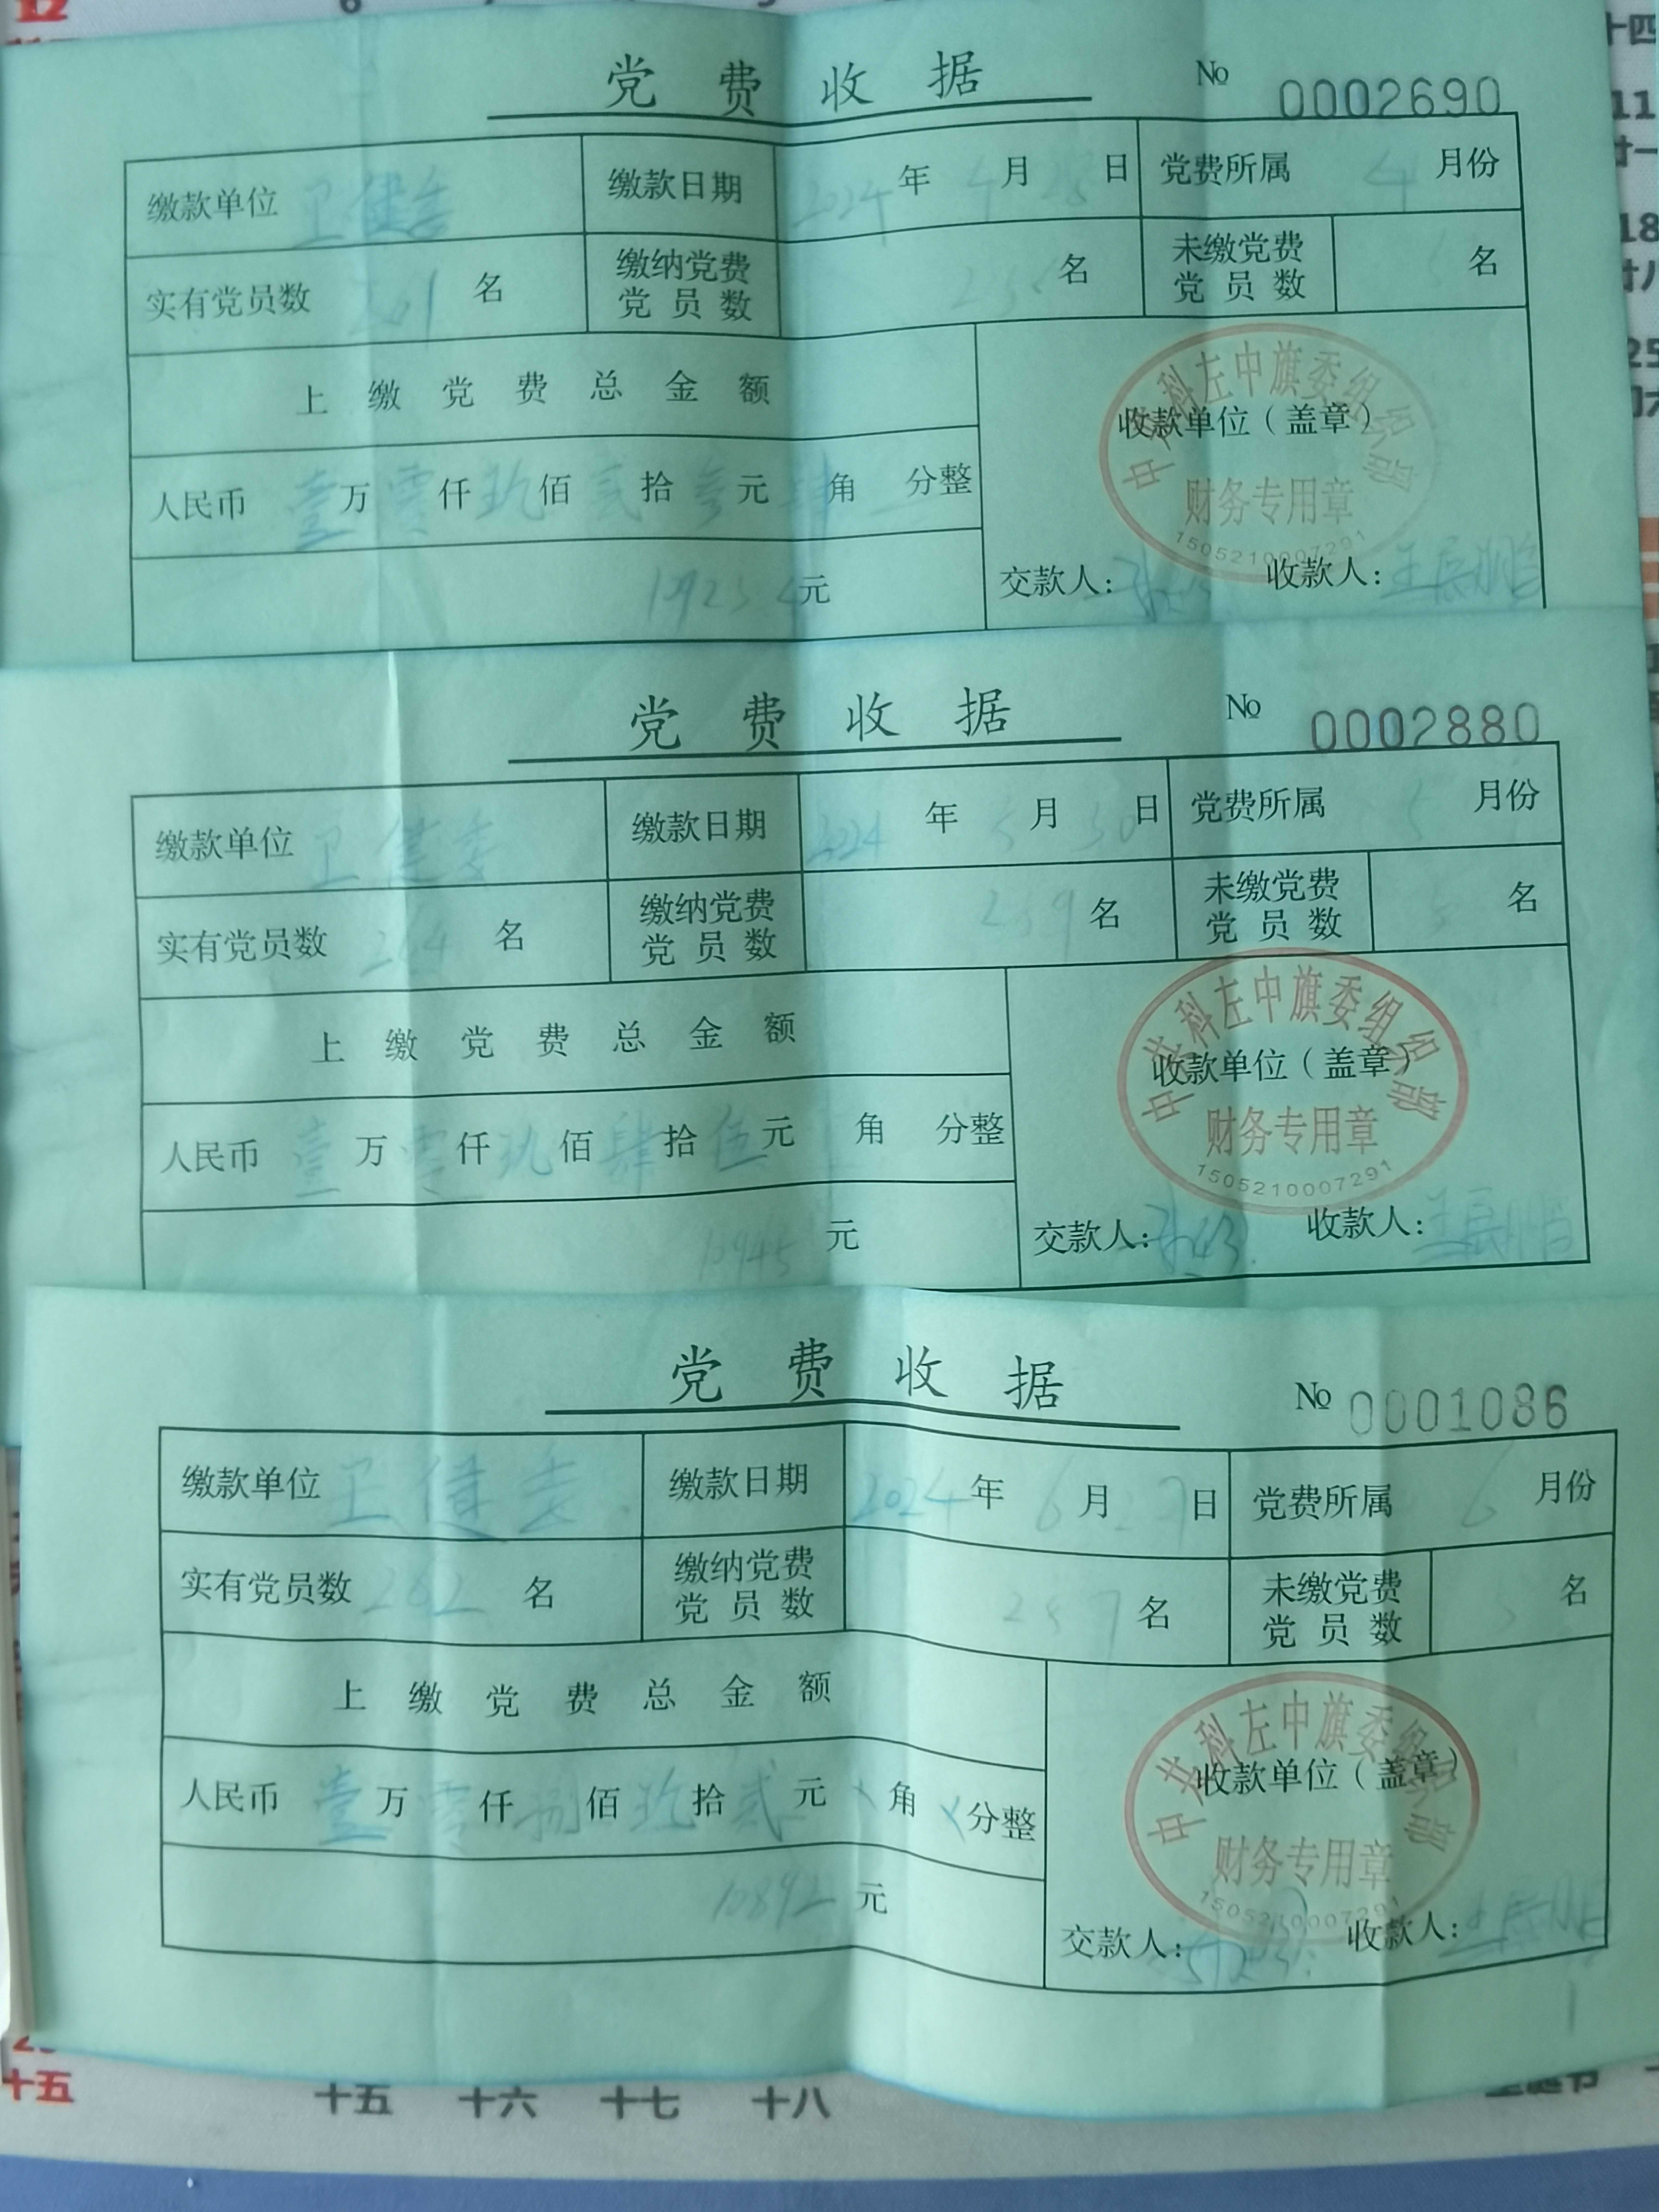 12
党费收据 № 0002690
缴款单位 卫健委 缴款日期 2024年4月28日 党费所属 4月份
实有党员数 261名 缴纳党费党员数 名 未缴党费党员数 名
上缴党费总金额
人民币 壹万零仟玖佰贰拾叁元肆角 分整
收款单位（盖章）
中共科左中旗委组织部
财务专用章
1505210007291
元
交款人： 收款人：王辰鹏
党费收据 № 0002880
缴款单位 卫健委 缴款日期 2024年5月30日 党费所属 5月份
实有党员数 264名 缴纳党费党员数 259名 未缴党费党员数 名
上缴党费总金额
人民币 壹万零仟玖佰肆拾伍元 角 分整
收款单位（盖章）
中共科左中旗委组织部
财务专用章
1505210007291
10945元
交款人： 收款人：王辰鹏
党费收据 № 0001086
缴款单位 卫健委 缴款日期 2024年6月27日 党费所属 6月份
实有党员数 262名 缴纳党费党员数 257名 未缴党费党员数 名
上缴党费总金额
人民币 壹万零仟捌佰玖拾贰元×角×分整
收款单位（盖章）
中共科左中旗委组织部
财务专用章
1505210007291
10892元
交款人： 收款人：王辰鹏
十四
11
廿一
18
廿八
25
十五 十五 十六 十七 十八